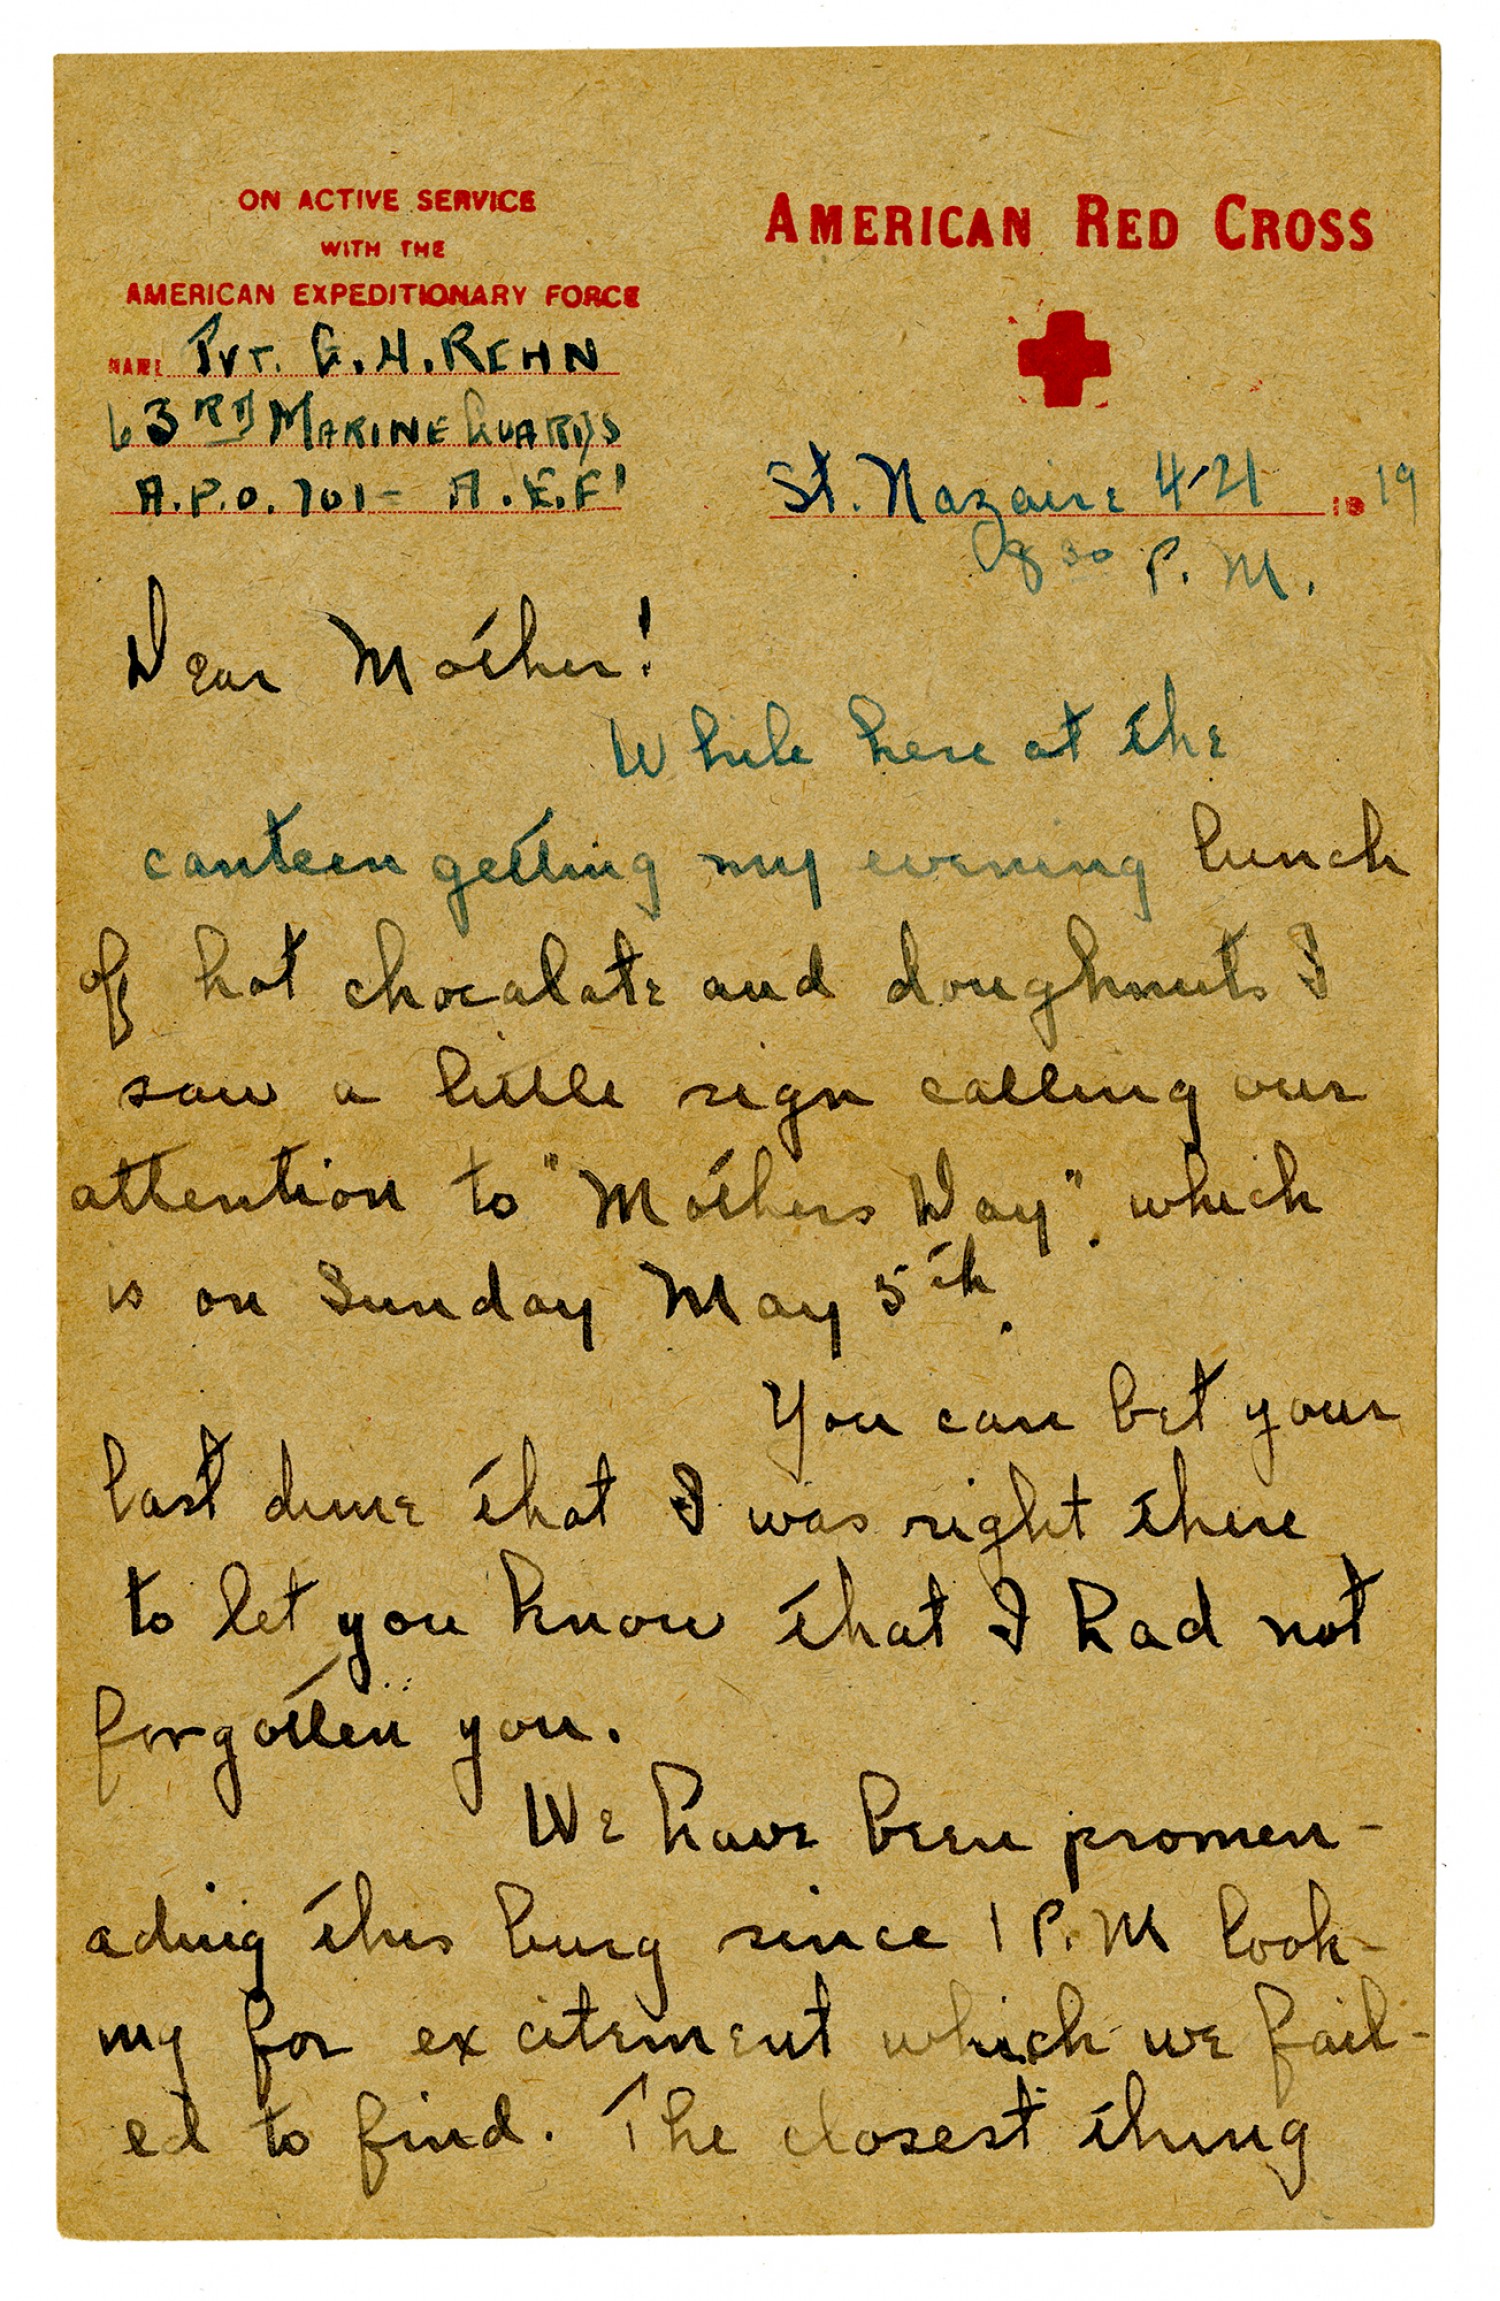 ON ACTIVE SERVICE
WITH THE
AMERICAN EXPEDITIONARY FORCE
NAME Pvt. G. H. REHN
63RD MARINE GUARDS
A.P.O. 701 - A.E.F!
AMERICAN RED CROSS
St. Nazaire 4-21 1919
8 30 P. M.
Dear Mother!
While here at the
canteen getting my evening lunch
of hot chocalate and doughnuts I
saw a little sign calling our
attention to "Mothers Day". which
is on Sunday May 5th.
You can bet your
last dime that I was right there
to let you know that I had not
forgotten you.
We have been promen-
ading this burg since 1 P.M look-
ing for excitement which we fail-
ed to find. The closest thing